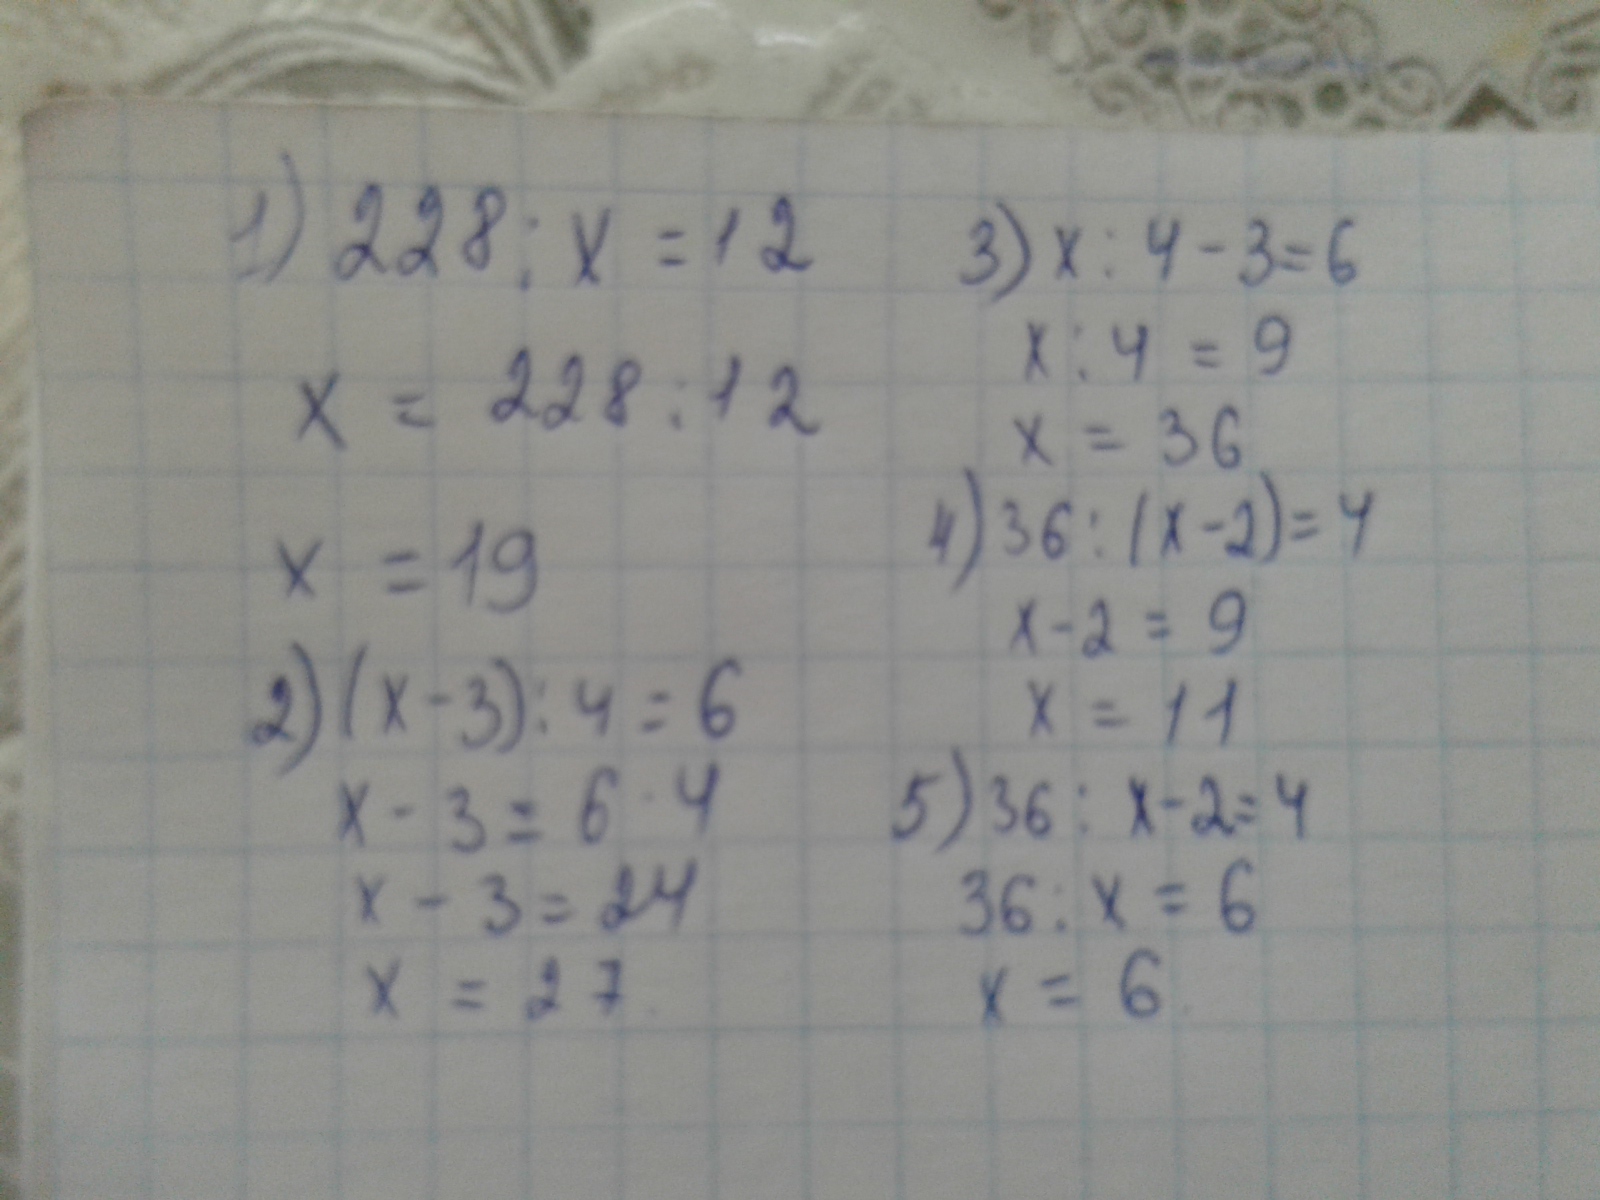 1) 228 : x = 12
x = 228 : 12
x = 19
2) (x - 3) : 4 = 6
x - 3 = 6 · 4
x - 3 = 24
x = 27
3) x : 4 - 3 = 6
x : 4 = 9
x = 36
4) 36 : (x - 2) = 4
x - 2 = 9
x = 11
5) 36 : x - 2 = 4
36 : x = 6
x = 6